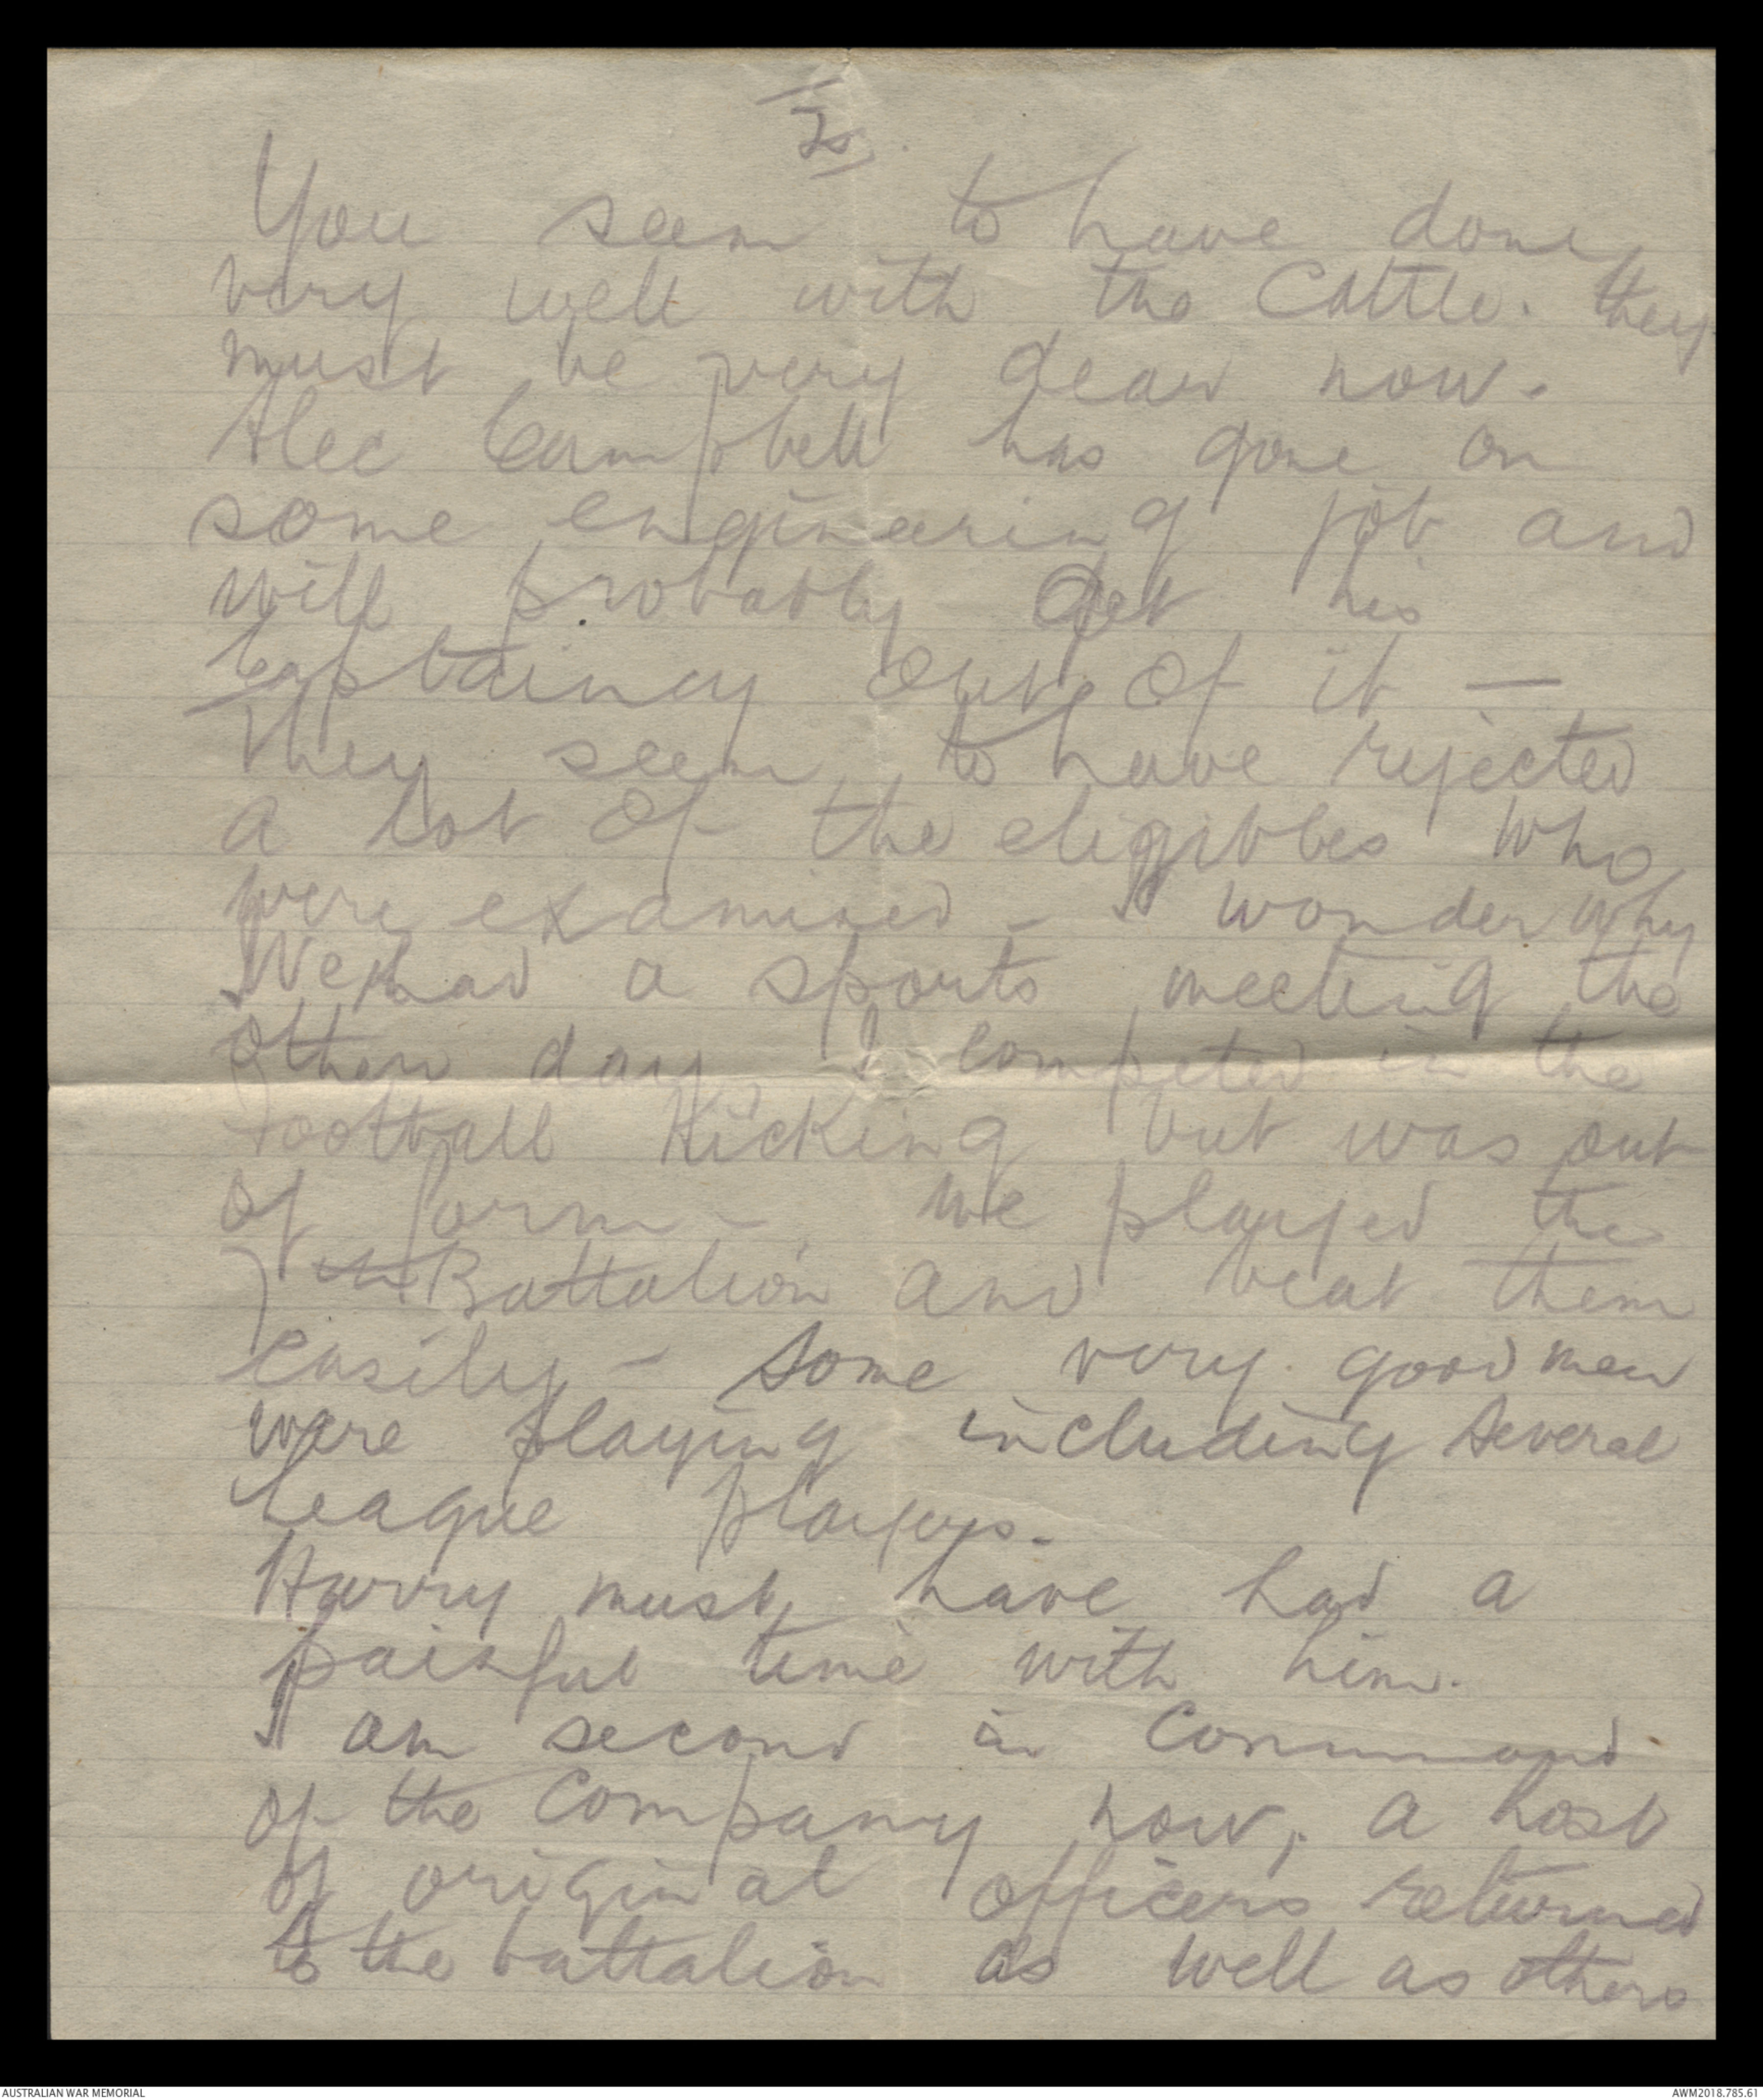 2.
You seem to have done
very well with the Cattle. they
must be very dear now.
Alec Campbell has gone on
some engineering job and
will probably get his
Captaincy out of it —
They seem to have rejected
a lot of the eligibles who
were examined - I wonder why
We had a sports meeting the
other day, I competed in the
football Kicking but was out
of form - we played the
7th Battalion and beat them
easily - some very good men
were playing including several
League players.
Harry must have had a
painful time with him.
I am second in Command
of the Company now, a host
of original officers returned
to the battalion as well as others
AUSTRALIAN WAR MEMORIAL
AWM2018.785.61